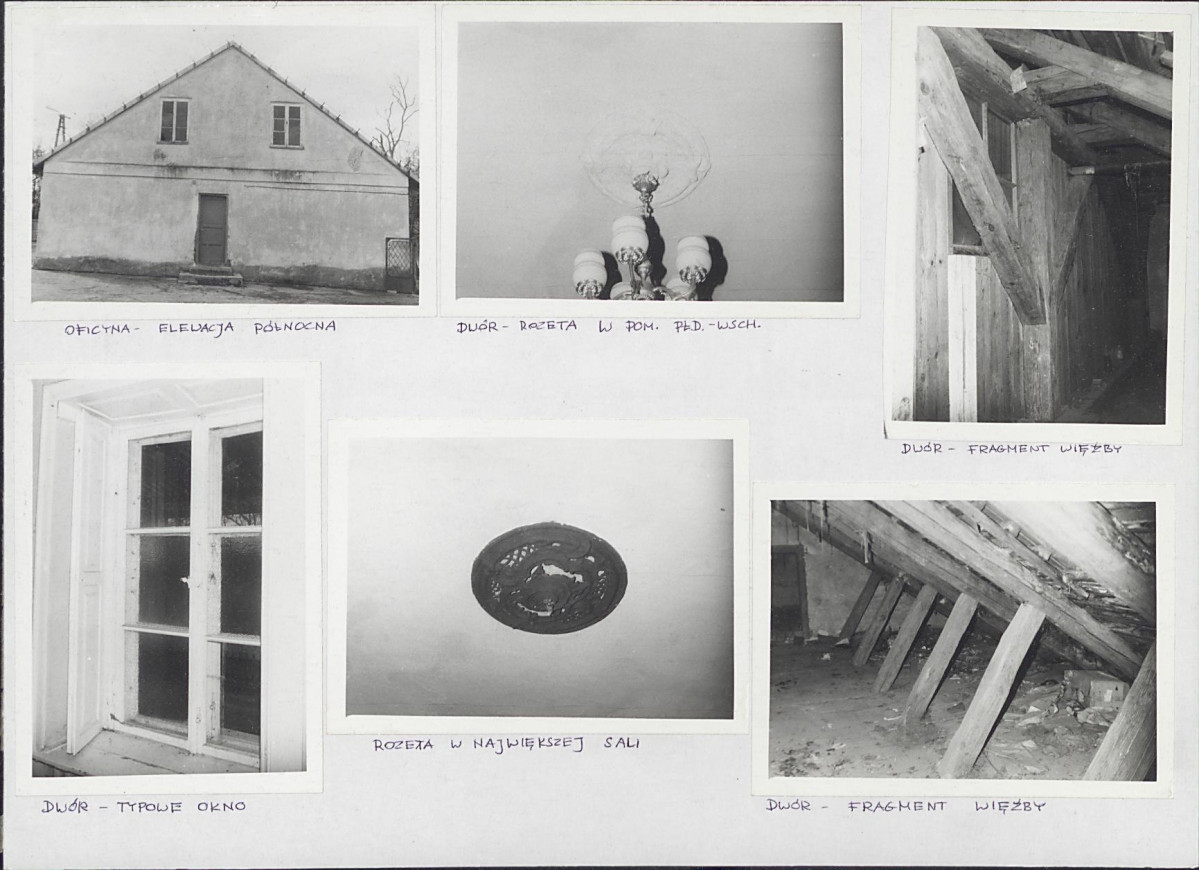 OFICYNA - ELEWACJA PÓŁNOCNA
DWÓR - ROZETA W POM. PŁD.-WSCH.
DWÓR - FRAGMENT WIĘŹBY
DWÓR - TYPOWE OKNO
ROZETA W NAJWIĘKSZEJ SALI
DWÓR - FRAGMENT WIĘŹBY